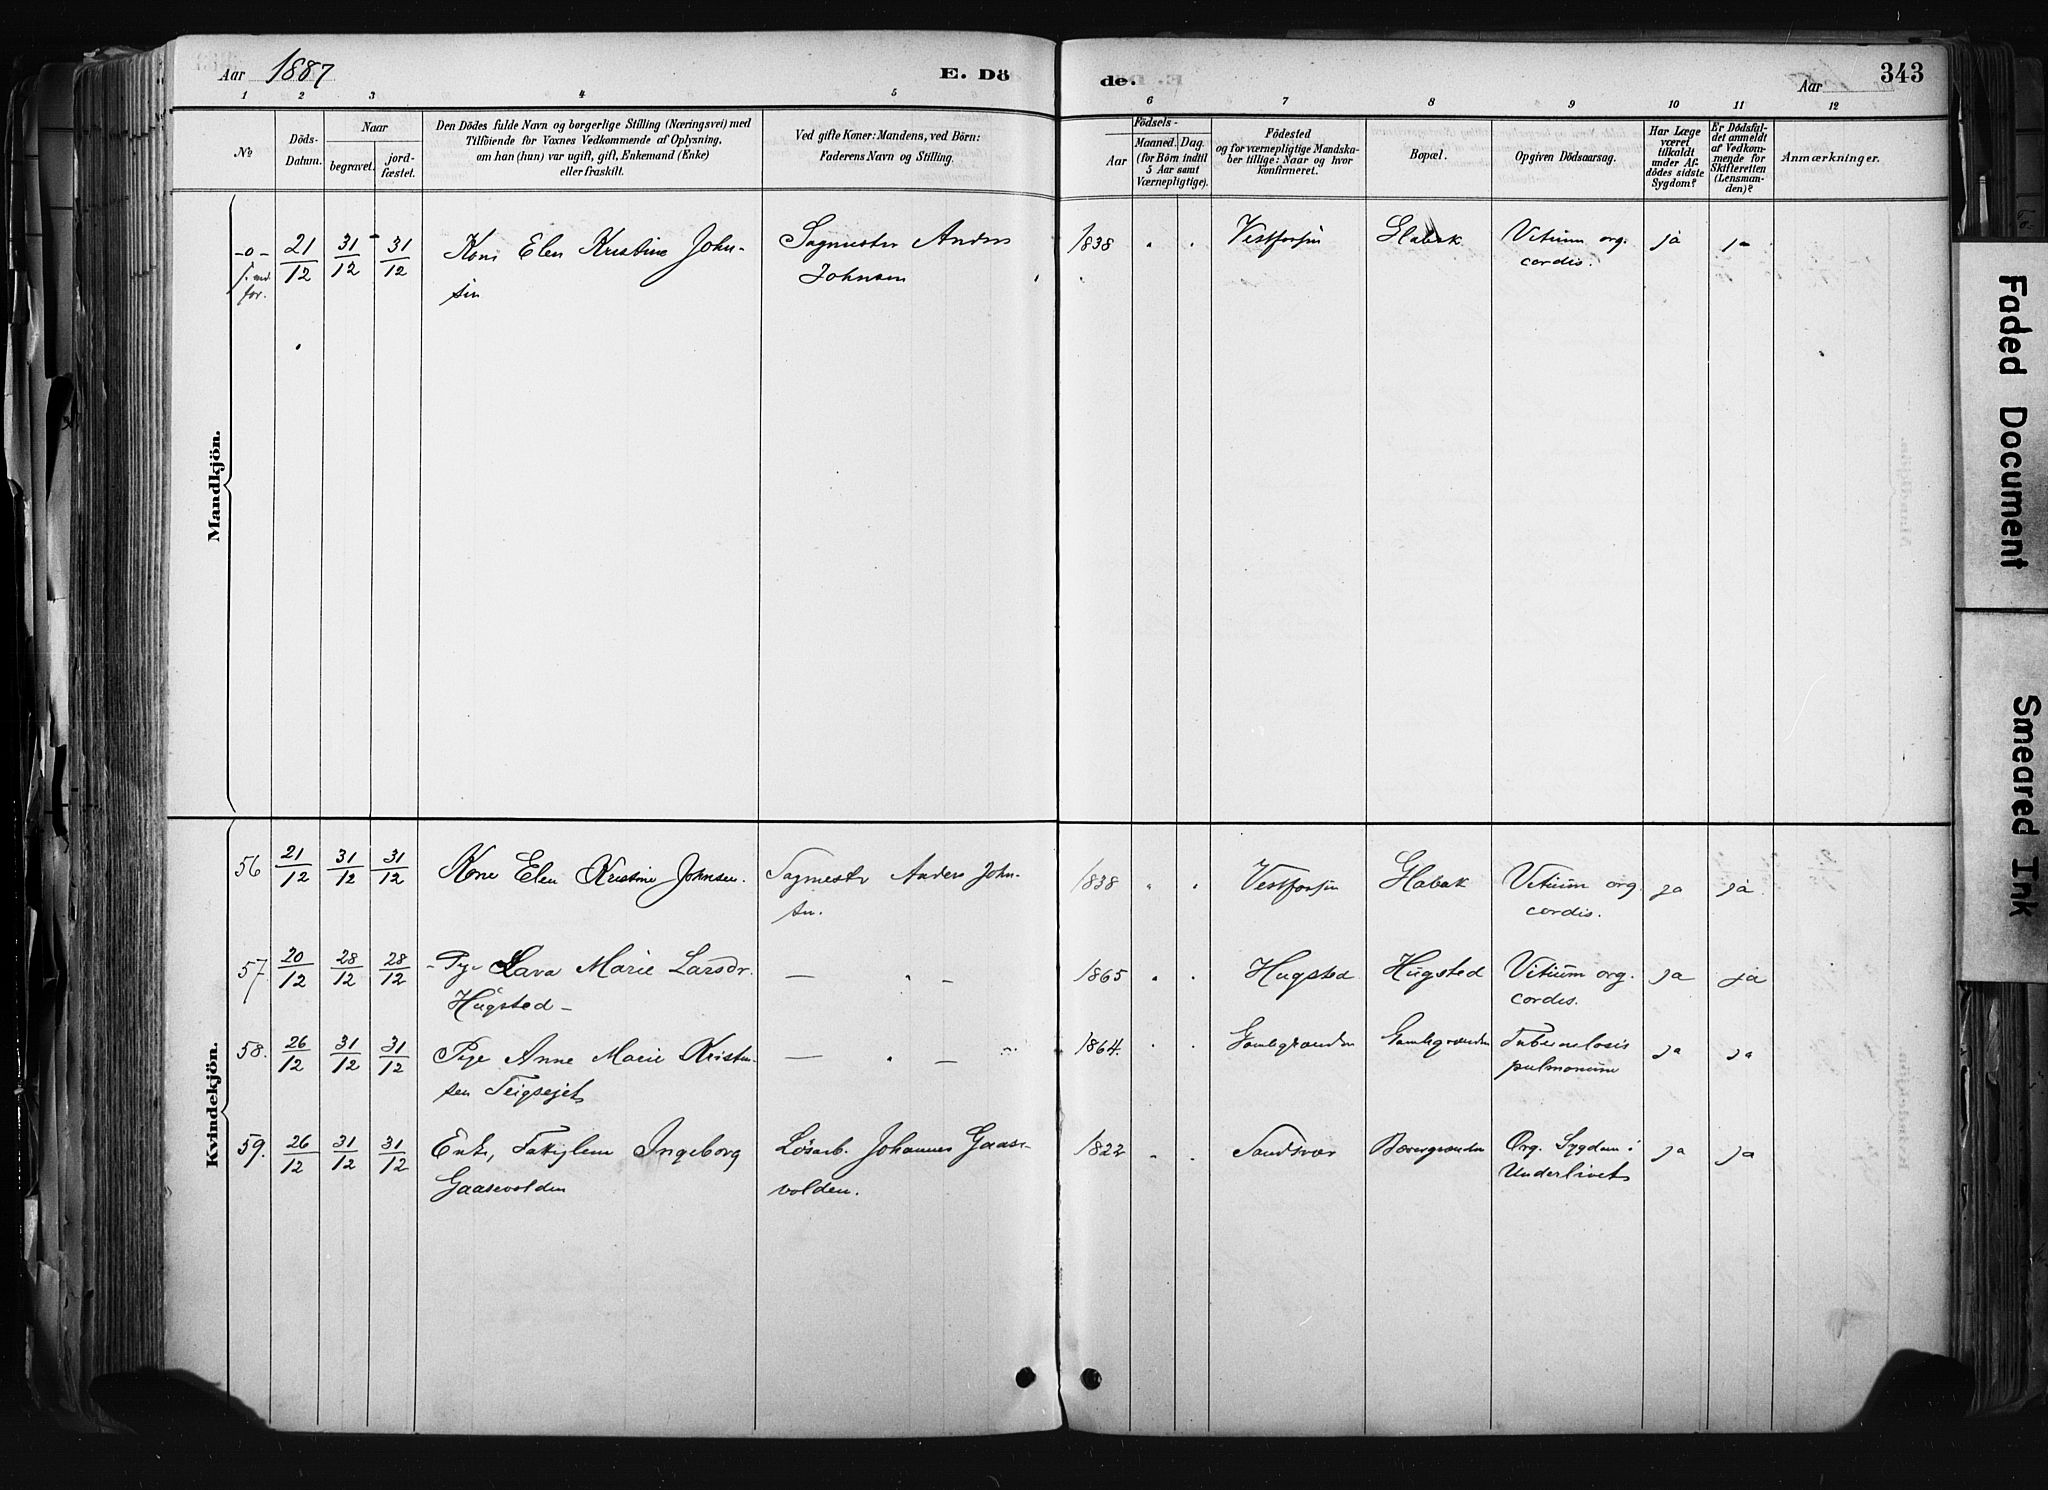 Aar 1887
E. Döde.
Aar
343
1 2 3 4 5 6 7 8 9 10 11 12
No
Döds-
Datum.
Naar
begravet.
jord-
fæstet.
Den Dödes fulde Navn og borgerlige Stilling (Næringsvei) med
Tilföiende for Voxnes Vedkommende af Oplysning,
om han (hun) var ugift, gift, Enkemand (Enke)
eller fraskilt.
Ved gifte Koner: Mandens, ved Börn:
Faderens Navn og Stilling.
Födsels-
Aar
Maaned. Dag.
(for Börn indtil
5 Aar samt
Værnepligtige).
Födested
og for værnepligtige Mandska-
ber tillige: Naar og hvor
konfirmeret.
Bopæl.
Opgiven Dödsaarsag.
Har Læge
været
tilkaldt
under Af-
dödes sidste
Sygdom?
Er Dödsfal-
det anmeldt
af Vedkom-
mende for
Skifteretten
(Lensman-
den)?
Anmærkninger.
Mandkjön.
-0- 21/12 31/12 31/12 Kone Elen Kristine John- Sagmester Anders 1838 Vestfossen Glabak Vitium org. ja ja
sen Johnsen cordis.
Kvindekjön.
56 21/12 31/12 31/12 Kone Elen Kristine Johnsen. Sagmester Anders John- 1838 " " Vestfossen Glabak Vitium org. ja ja.
sen. cordis.
57. 20/12 28/12 28/12 Pige Lava Marie Larsdr. — " — 1865 " " Hugsted Hugsted Vitium org. ja ja
Hugsted – cordis.
58. 26/12 31/12 31/12 Pige Anne Marie Kristen- — " — 1864. " " Tuberculosis ja ja
sen Teigsejet pulmonum
59. 26/12 31/12 31/12 Enke, Ingeborg Løsarb. Johannes Gaase- 1822 " " Sandsvær Org. Sygdom i ja ja
Gaasevolden volden. Underlivet
Faded Document
Smeared Ink